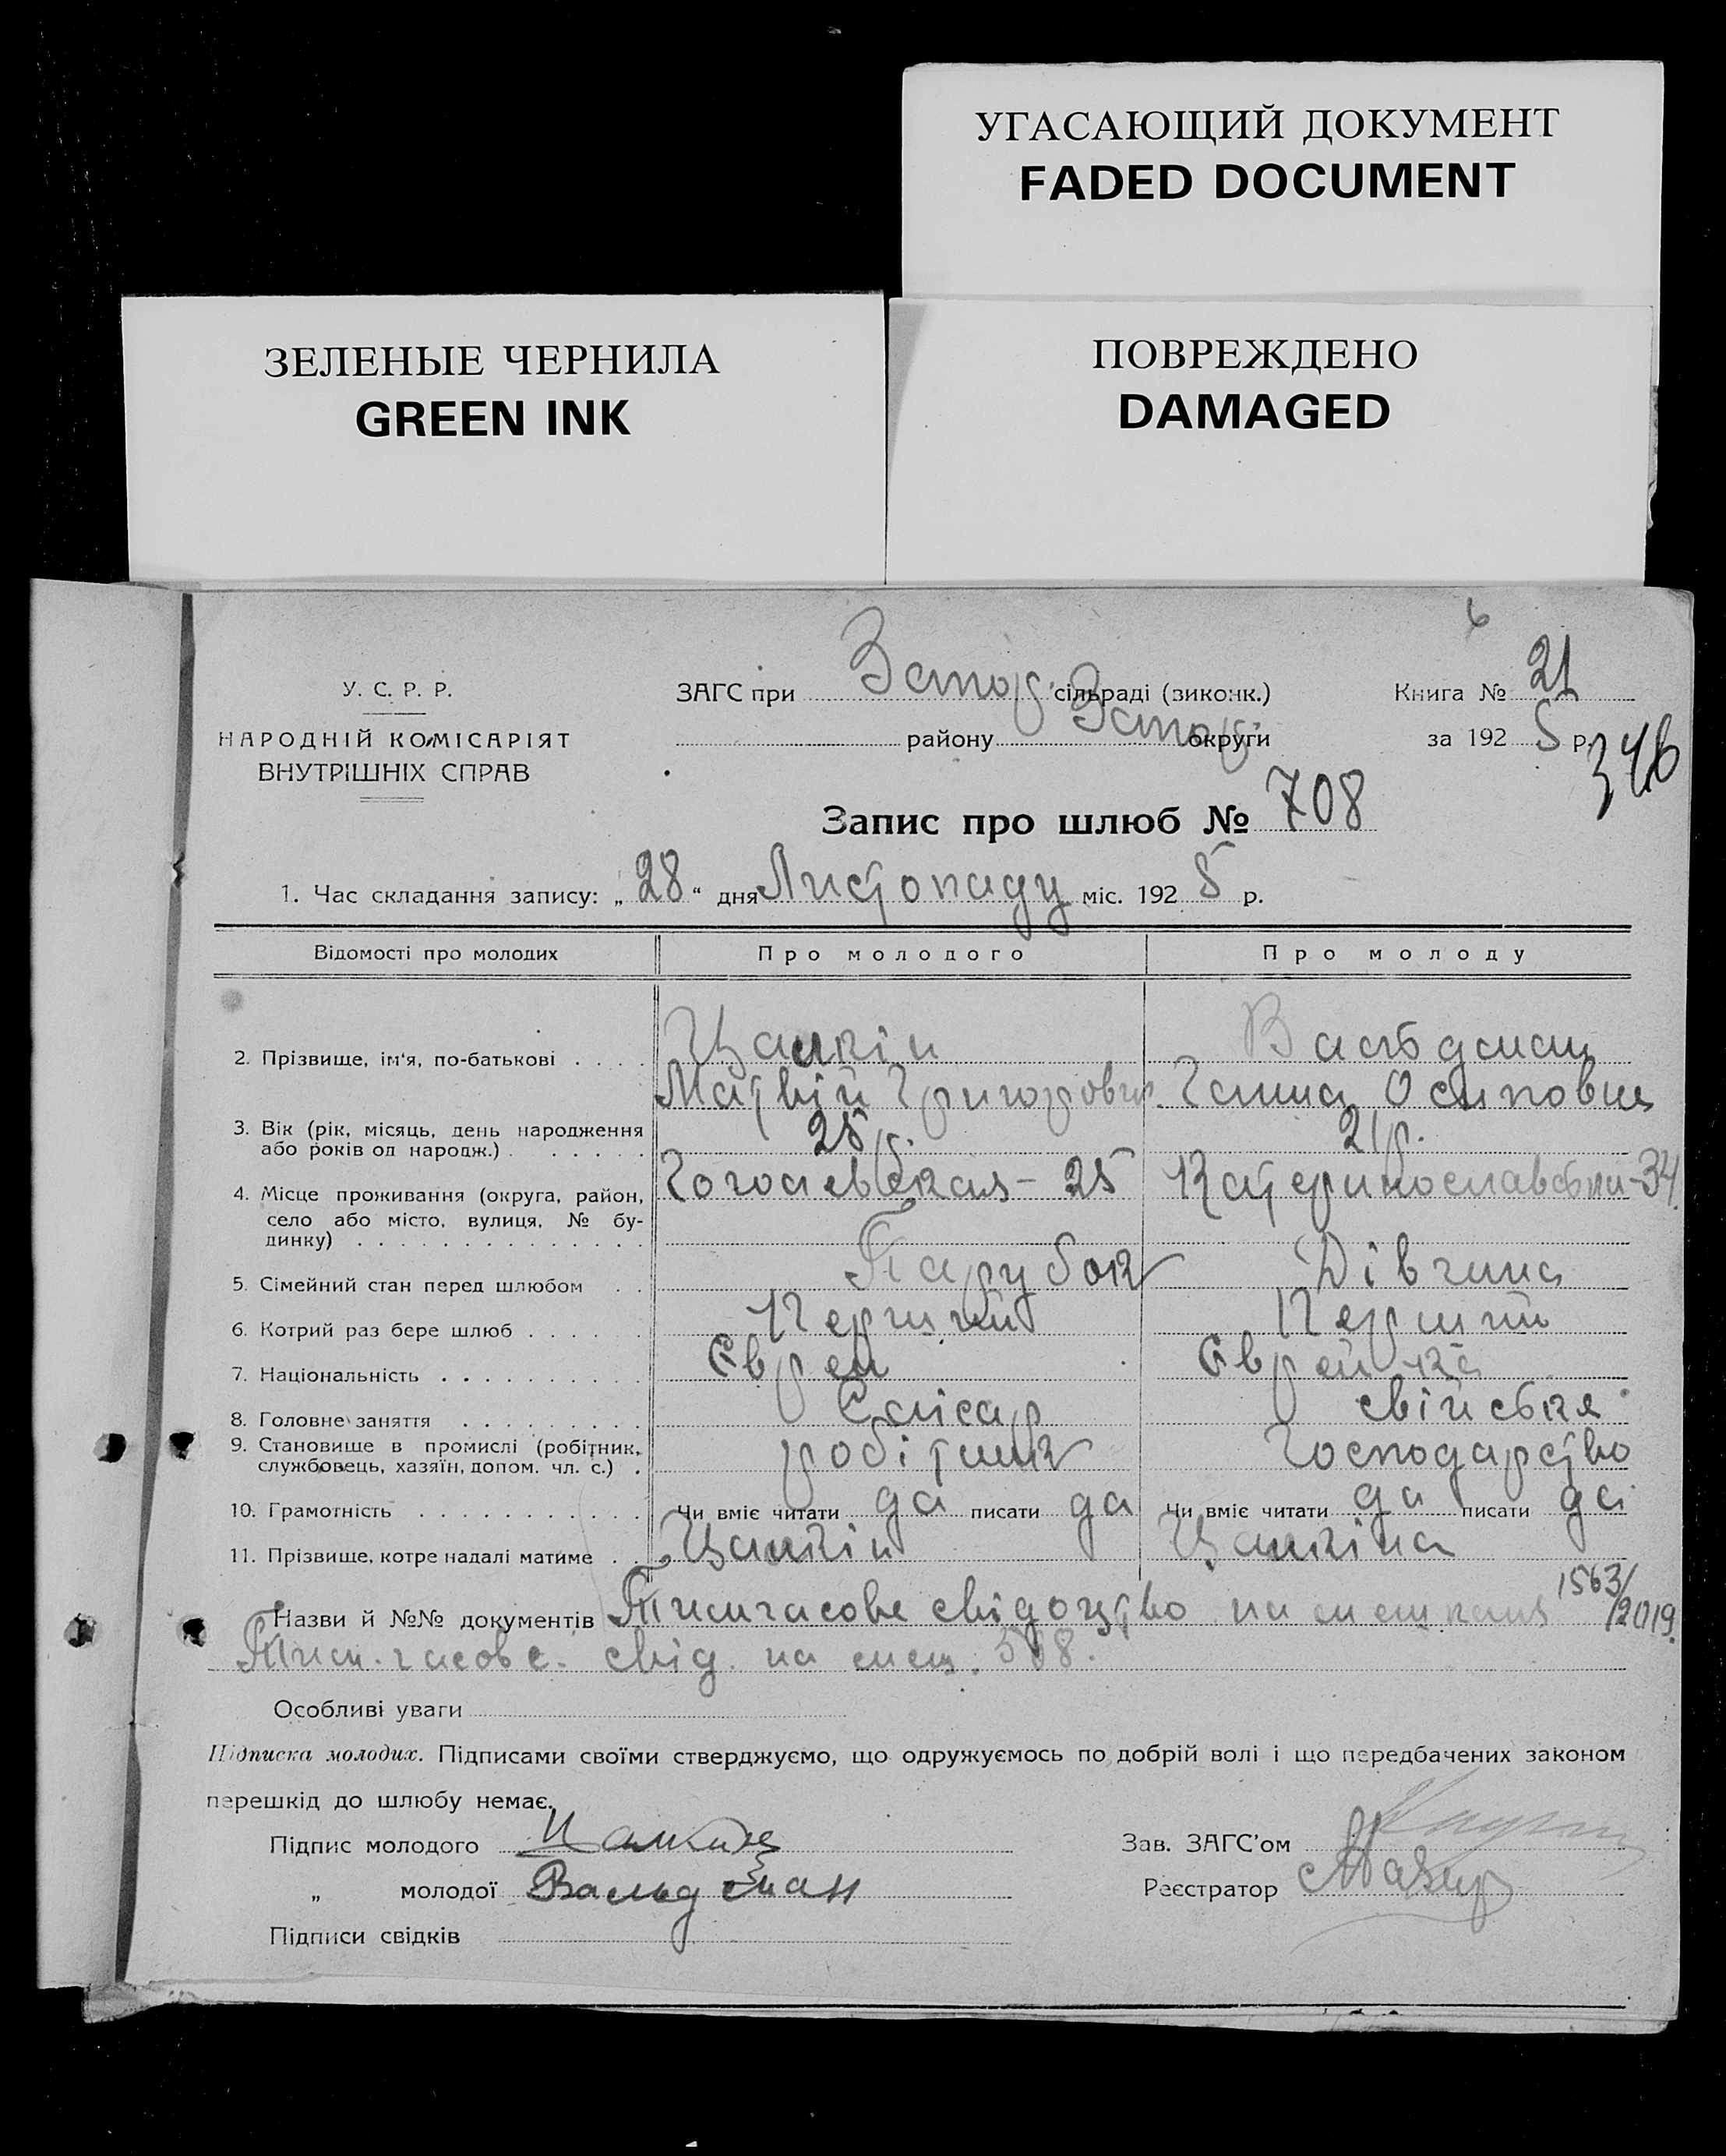 УГАСАЮЩИЙ ДОКУМЕНТ
FADED DOCUMENT
ЗЕЛЕНЫЕ ЧЕРНИЛА
GREEN INK
ПОВРЕЖДЕНО
DAMAGED
У. С. Р. Р.
НАРОДНІЙ КОМІСАРІЯТ
ВНУТРІШНІХ СПРАВ
ЗАГС при Запор. сільраді (виконк.)
району Запор. округи
Книга № 21
за 192 5 р.
346
Запис про шлюб № 708
1. Час складання запису: „ 28 “ дня Листопаду міс. 192 5 р.
Відомості про молодих Про молодого Про молоду
2. Прізвище, ім'я, по-батькові . . . . Цапкін Вальдман
Матвій Григорович Ганна Осиповна
3. Вік (рік, місяць, день народження або років од народж.) 25 р. 21 р.
4. Місце проживання (округа, район, село або місто, вулиця, № будинку) Гоголевская - 25 Катеринославська - 34.
5. Сімейний стан перед шлюбом . . Парубок Дівчина
6. Котрий раз бере шлюб . . . . . Перший Перший
7. Національність . . . . . . . . . Єврей Єврейка
8. Головне заняття . . . . . . . . Слісар свійське
9. Становище в промислі (робітник, службовець, хазяїн, допом. чл. с.) . робітник Господарство
10. Грамотність . . . . . . . . . . Чи вміє читати да писати да Чи вміє читати да писати да
11. Прізвище, котре надалі матиме . . Цапкін Цапкіна
Назви й №№ документів Тимчасове свідоцтво на мешкання 1563/2019.
Тим.часове. свід. на меш. 508.
Особливі уваги
Підписка молодих. Підписами своїми стверджуємо, що одружуємось по добрій волі і що передбачених законом
перешкід до шлюбу немає.
Підпис молодого Цапкин
„ молодої Вальдман
Підписи свідків
Зав. ЗАГС'ом
Реєстратор